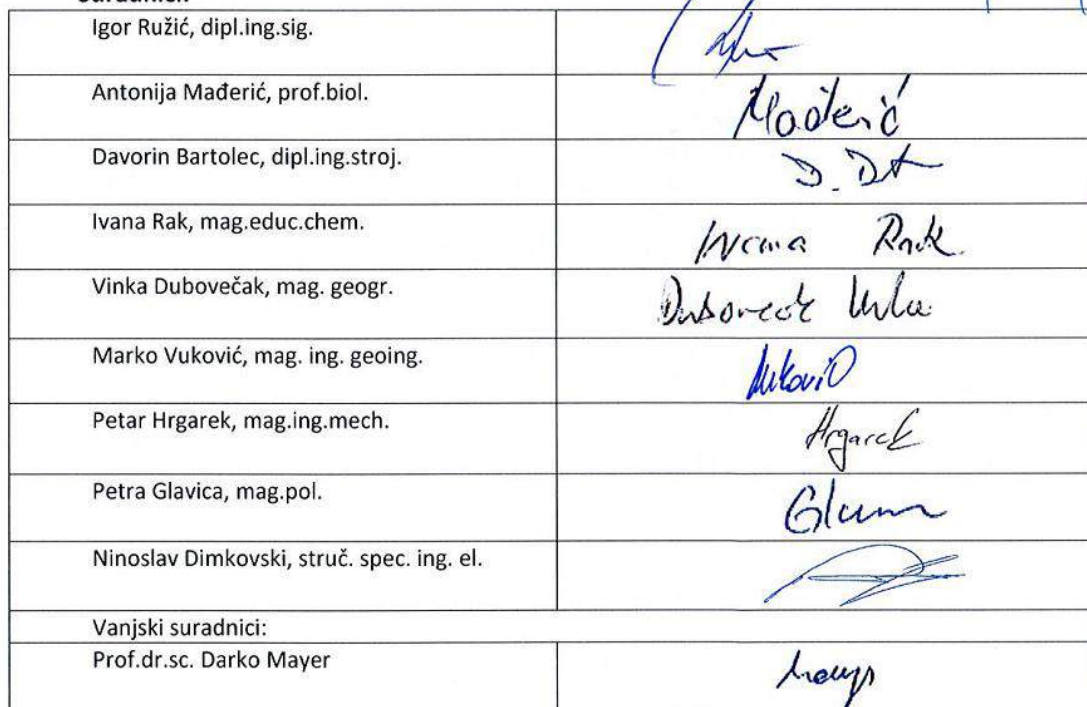 Igor Ružić, dipl.ing.sig.
Antonija Mađerić, prof.biol.
Mađerić
Davorin Bartolec, dipl.ing.stroj.
Ivana Rak, mag.educ.chem.
Ivana Rak
Vinka Dubovečak, mag. geogr.
Dubovečak
Marko Vuković, mag. ing. geoing.
Petar Hrgarek, mag.ing.mech.
Hrgarek
Petra Glavica, mag.pol.
Ninoslav Dimkovski, struč. spec. ing. el.
Vanjski suradnici:
Prof.dr.sc. Darko Mayer